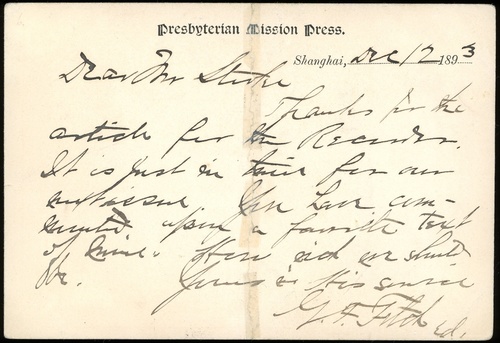 Presbyterian Mission Press.
Shanghai, Dec 12 1893
Dear Mr Stoke
Thanks for the
article for the Recorder.
It is just in time for our
next issue. You have com-
mented upon a favorite text
of mine. How rich we should
be. Yours in His service
G. F. Fitch ed.